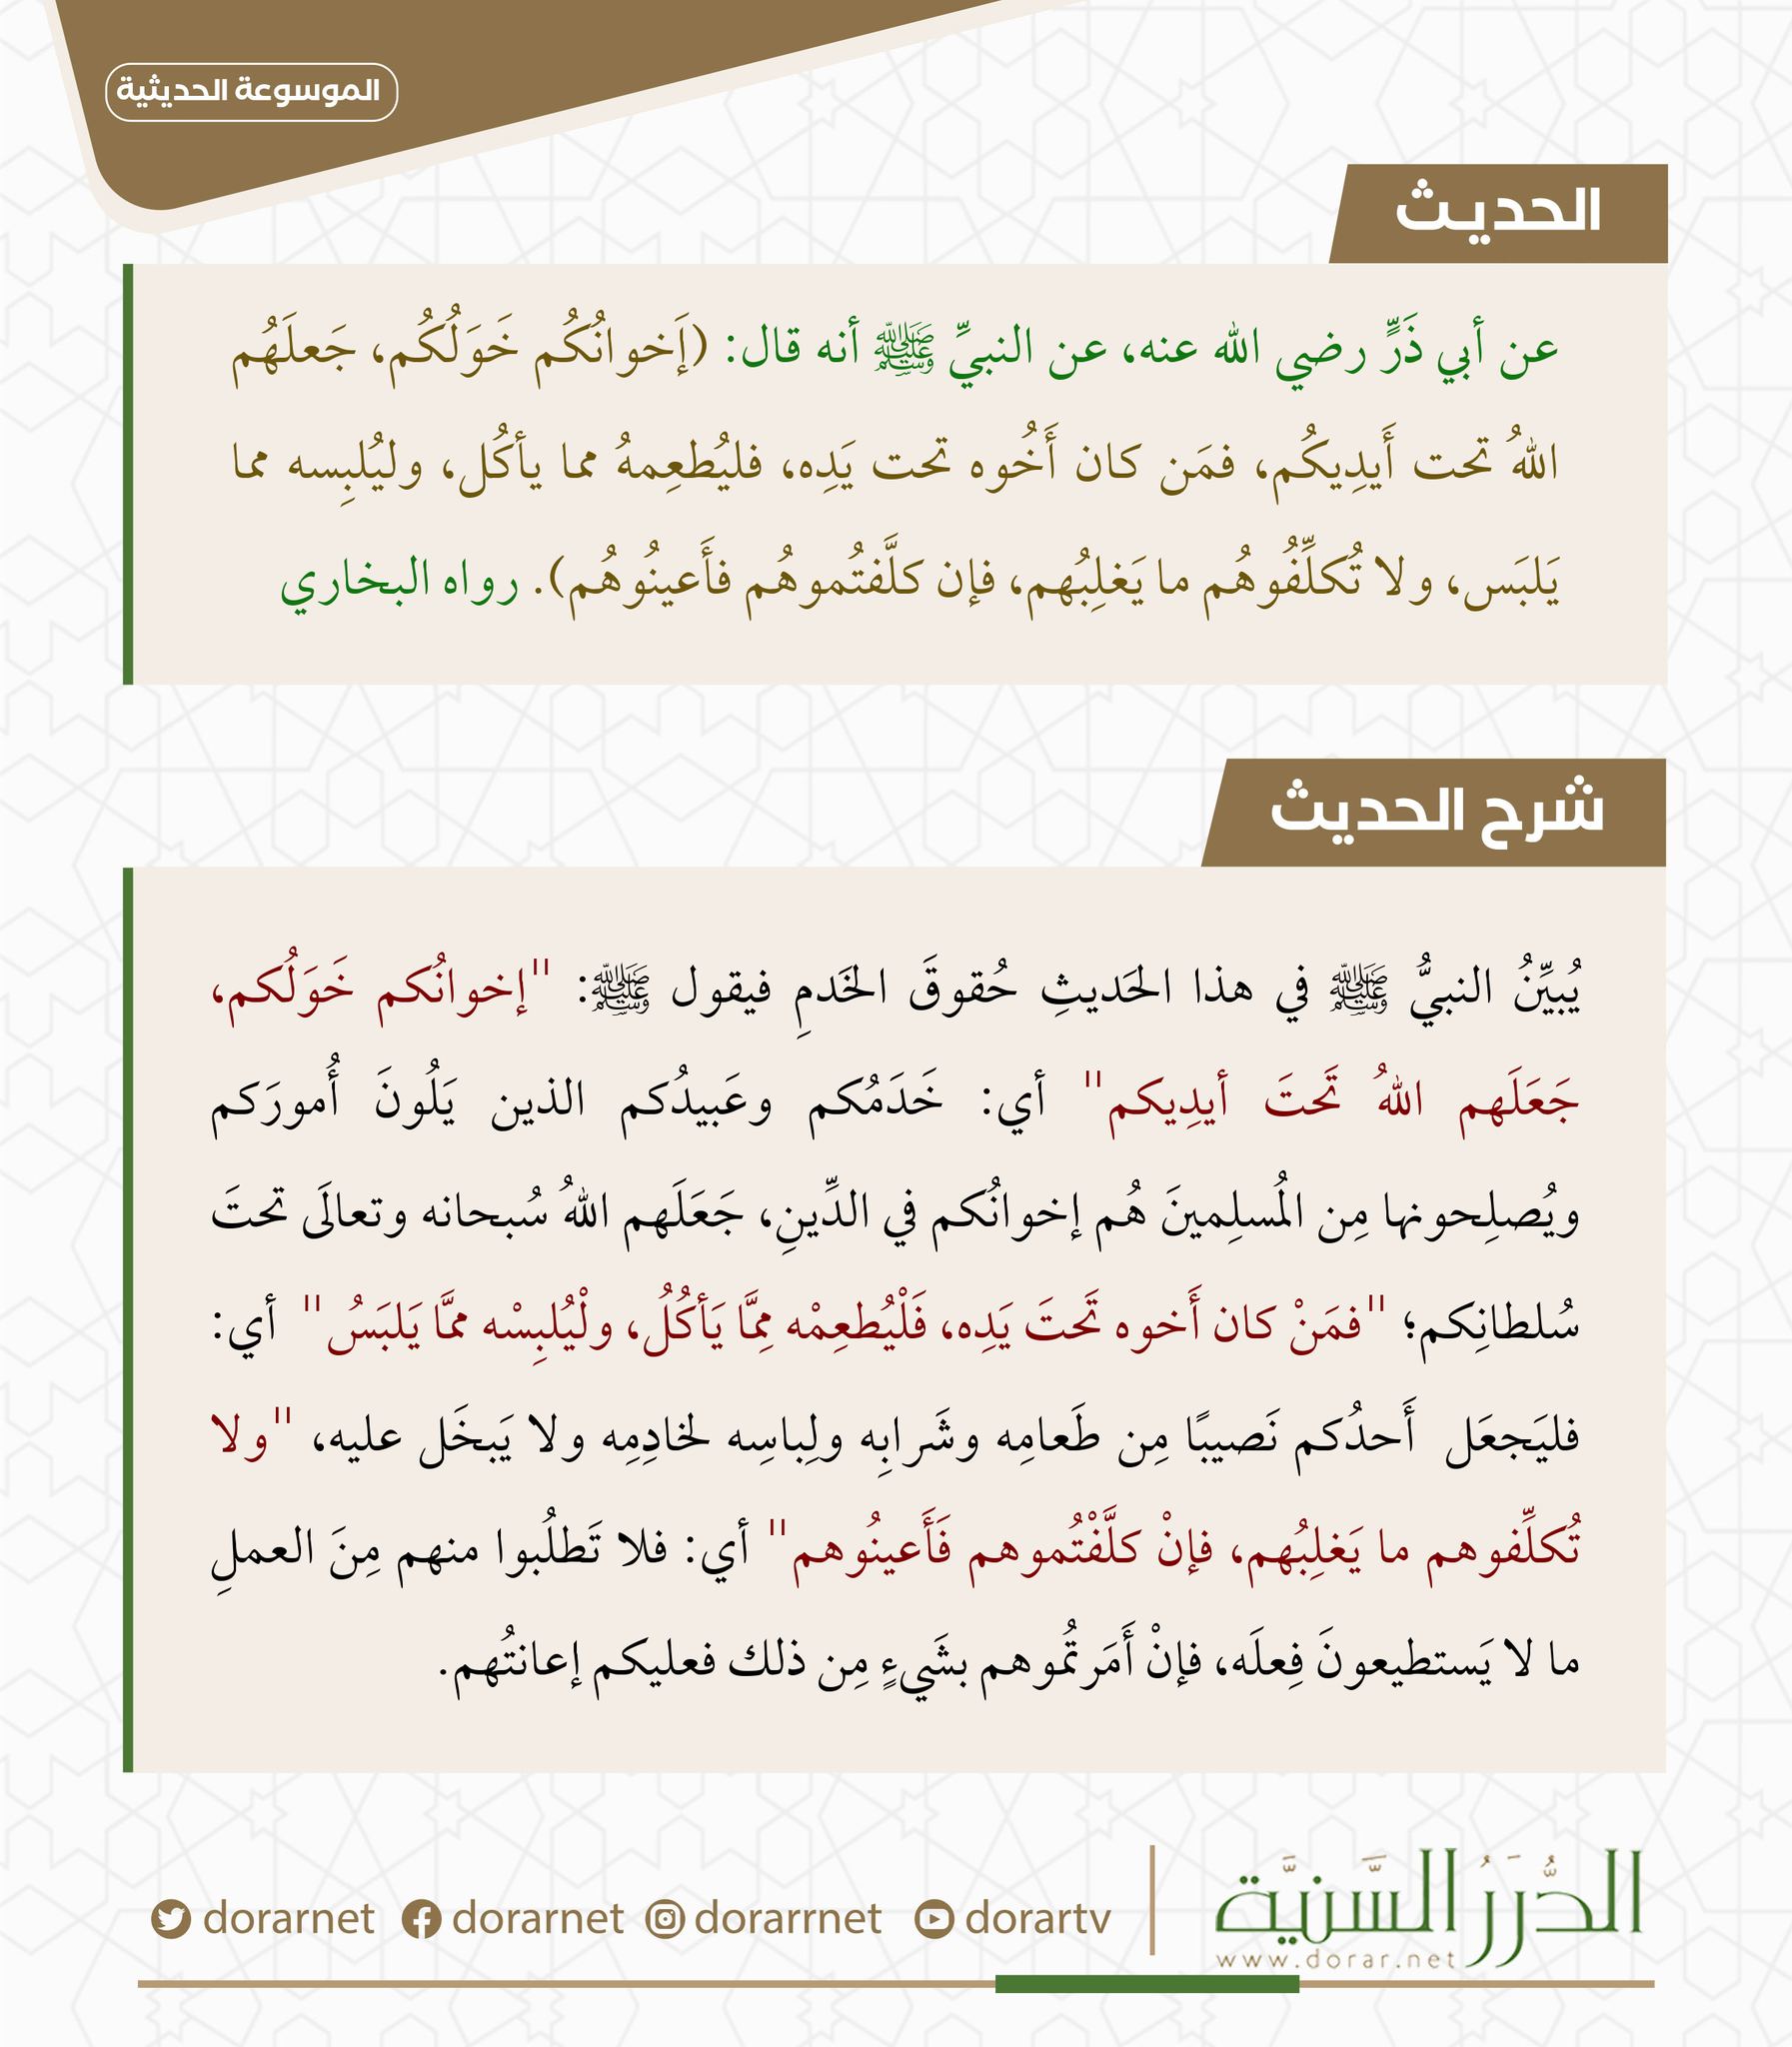 الموسوعة الحديثية
الحديث
عن أبي ذَرٍّ رضي الله عنه، عن النبيِّ ﷺ أنه قال: (إَخوانُكُم خَوَلُكُم، جَعلَهُم
اللهُ تحت أَيدِيكُم، فمَن كان أَخُوه تحت يَدِه، فليُطعِمهُ مما يأكُل، وليُلبِسه مما
يَلبَس، ولا تُكلِّفُوهُم ما يَغلِبُهم، فإن كلَّفتُموهُم فأَعينُوهُم). رواه البخاري
شرح الحديث
يُبيِّنُ النبيُّ ﷺ في هذا الحَديثِ حُقوقَ الخَدمِ فيقول ﷺ: "إخوانُكم خَوَلُكم،
جَعَلَهم اللهُ تَحتَ أيدِيكم" أي: خَدَمُكم وعَبيدُكم الذين يَلُونَ أُمورَكم
ويُصلِحونها مِن المُسلِمينَ هُم إخوانُكم في الدِّينِ، جَعَلَهم اللهُ سُبحانه وتعالَى تحتَ
سُلطانِكم؛ "فمَنْ كان أَخوه تَحتَ يَدِه، فَلْيُطعِمْه مِمَّا يَأكُلُ، ولْيُلبِسْه ممَّا يَلبَسُ" أي:
فليَجعَل أَحدُكم نَصيبًا مِن طَعامِه وشَرابِه ولِباسِه لخادِمِه ولا يَبخَل عليه، "ولا
تُكلِّفوهم ما يَغلِبُهم، فإنْ كلَّفْتُموهم فَأَعينُوهم" أي: فلا تَطلُبوا منهم مِنَ العملِ
ما لا يَستطيعونَ فِعلَه، فإنْ أَمَرتُموهم بشَيءٍ مِن ذلك فعليكم إعانتُهم.
الدُّرَرُ السَّنيَّة
www.dorar.net
dorarnet dorarnet dorarrnet dorartv